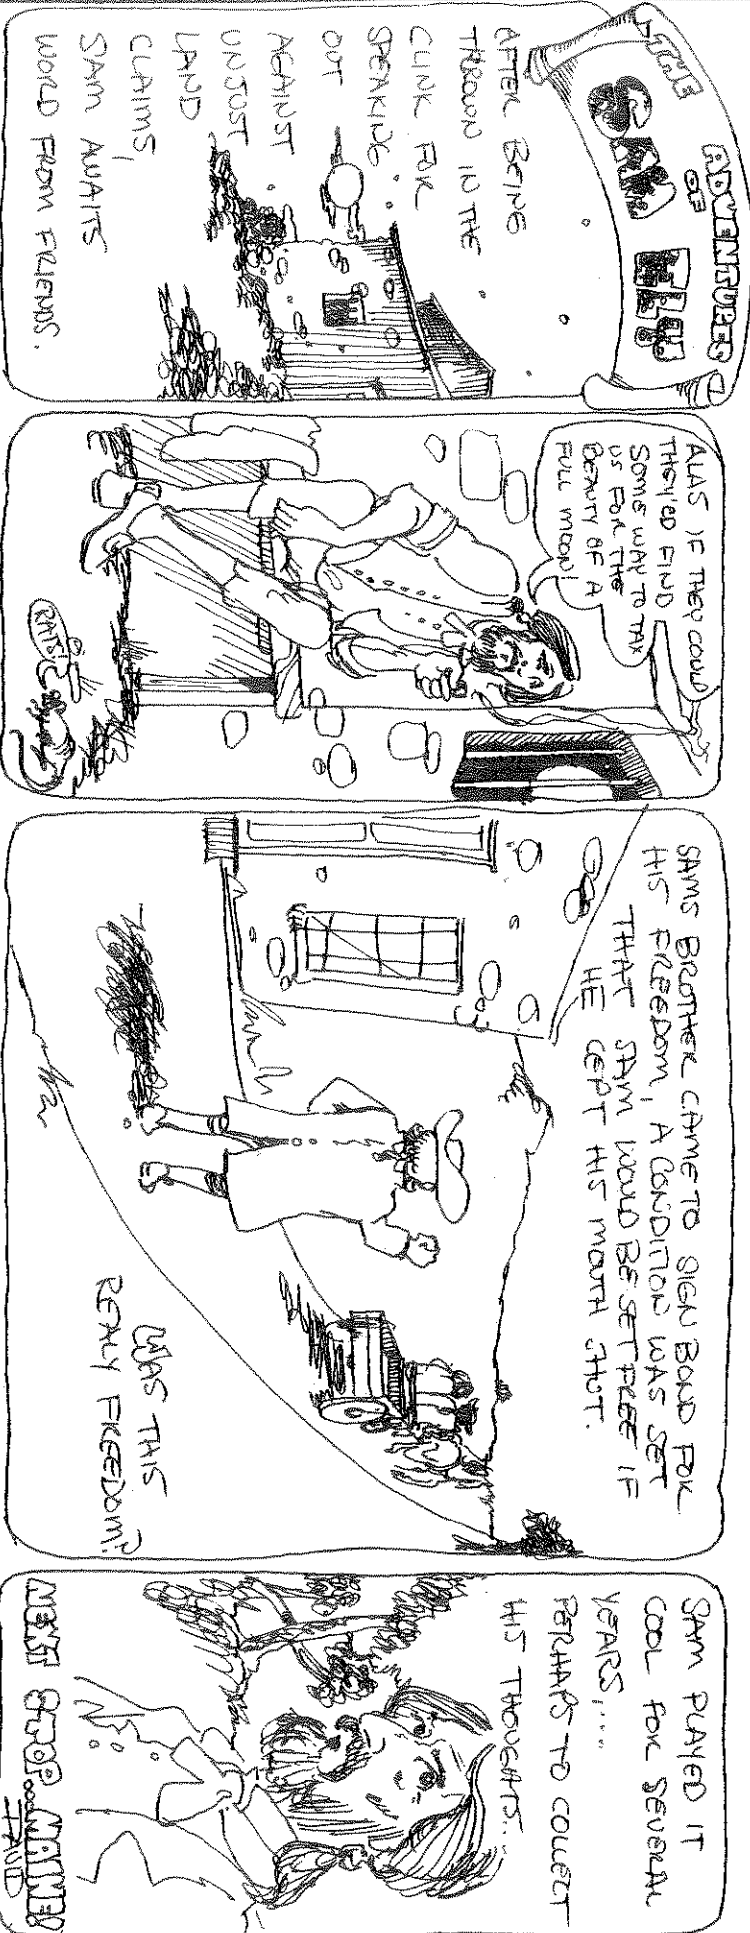 THE
ADVENTURES
OF
SAM
ELY
AFTER BEING
THROWN IN THE
CLINK FOR
SPEAKING
OUT
AGAINST
UNJUST
LAND
CLAIMS,
SAM AWAITS
WORLD FROM FRIENDS.
ALAS IF THEY COULD
THEY'ED FIND
SOME WAY TO TAX
US FOR THE
BEAUTY OF A
FULL MOON!
RATS!
SAMS BROTHER CAME TO SIGN BOND FOR
HIS FREEDOM, A CONDITION WAS SET
THAT SAM WOULD BE SET FREE IF
HE CEPT HIS MOUTH SHUT.
WAS THIS
REALY FREEDOM?
SAM PLAYED IT
COOL FOR SEVERAL
YEARS,...
PERHAPS TO COLLECT
HIS THOUGHTS...
NEXT STOP...MAINE!